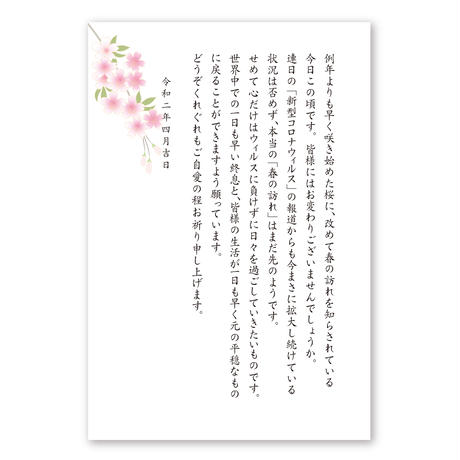 例年よりも早く咲き始めた桜に、改めて春の訪れを知らされている
今日この頃です。皆様にはお変わりございませんでしょうか。
連日の「新型コロナウィルス」の報道からも今まさに拡大し続けている
状況は否めず、本当の「春の訪れ」はまだ先のようです。
せめて心だけはウィルスに負けずに日々を過ごしていきたいものです。
世界中での一日も早い終息と、皆様の生活が一日も早く元の平穏なもの
に戻ることができますよう願っています。
どうぞくれぐれもご自愛の程お祈り申し上げます。
令和二年四月吉日